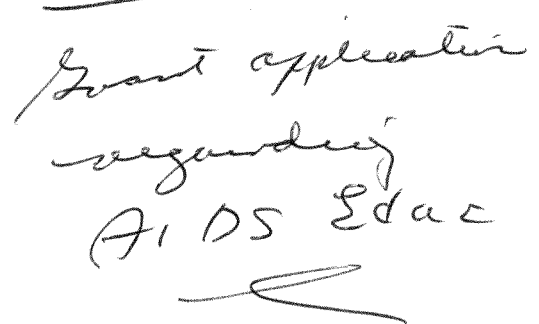 Grant application
regarding
AIDS Educ